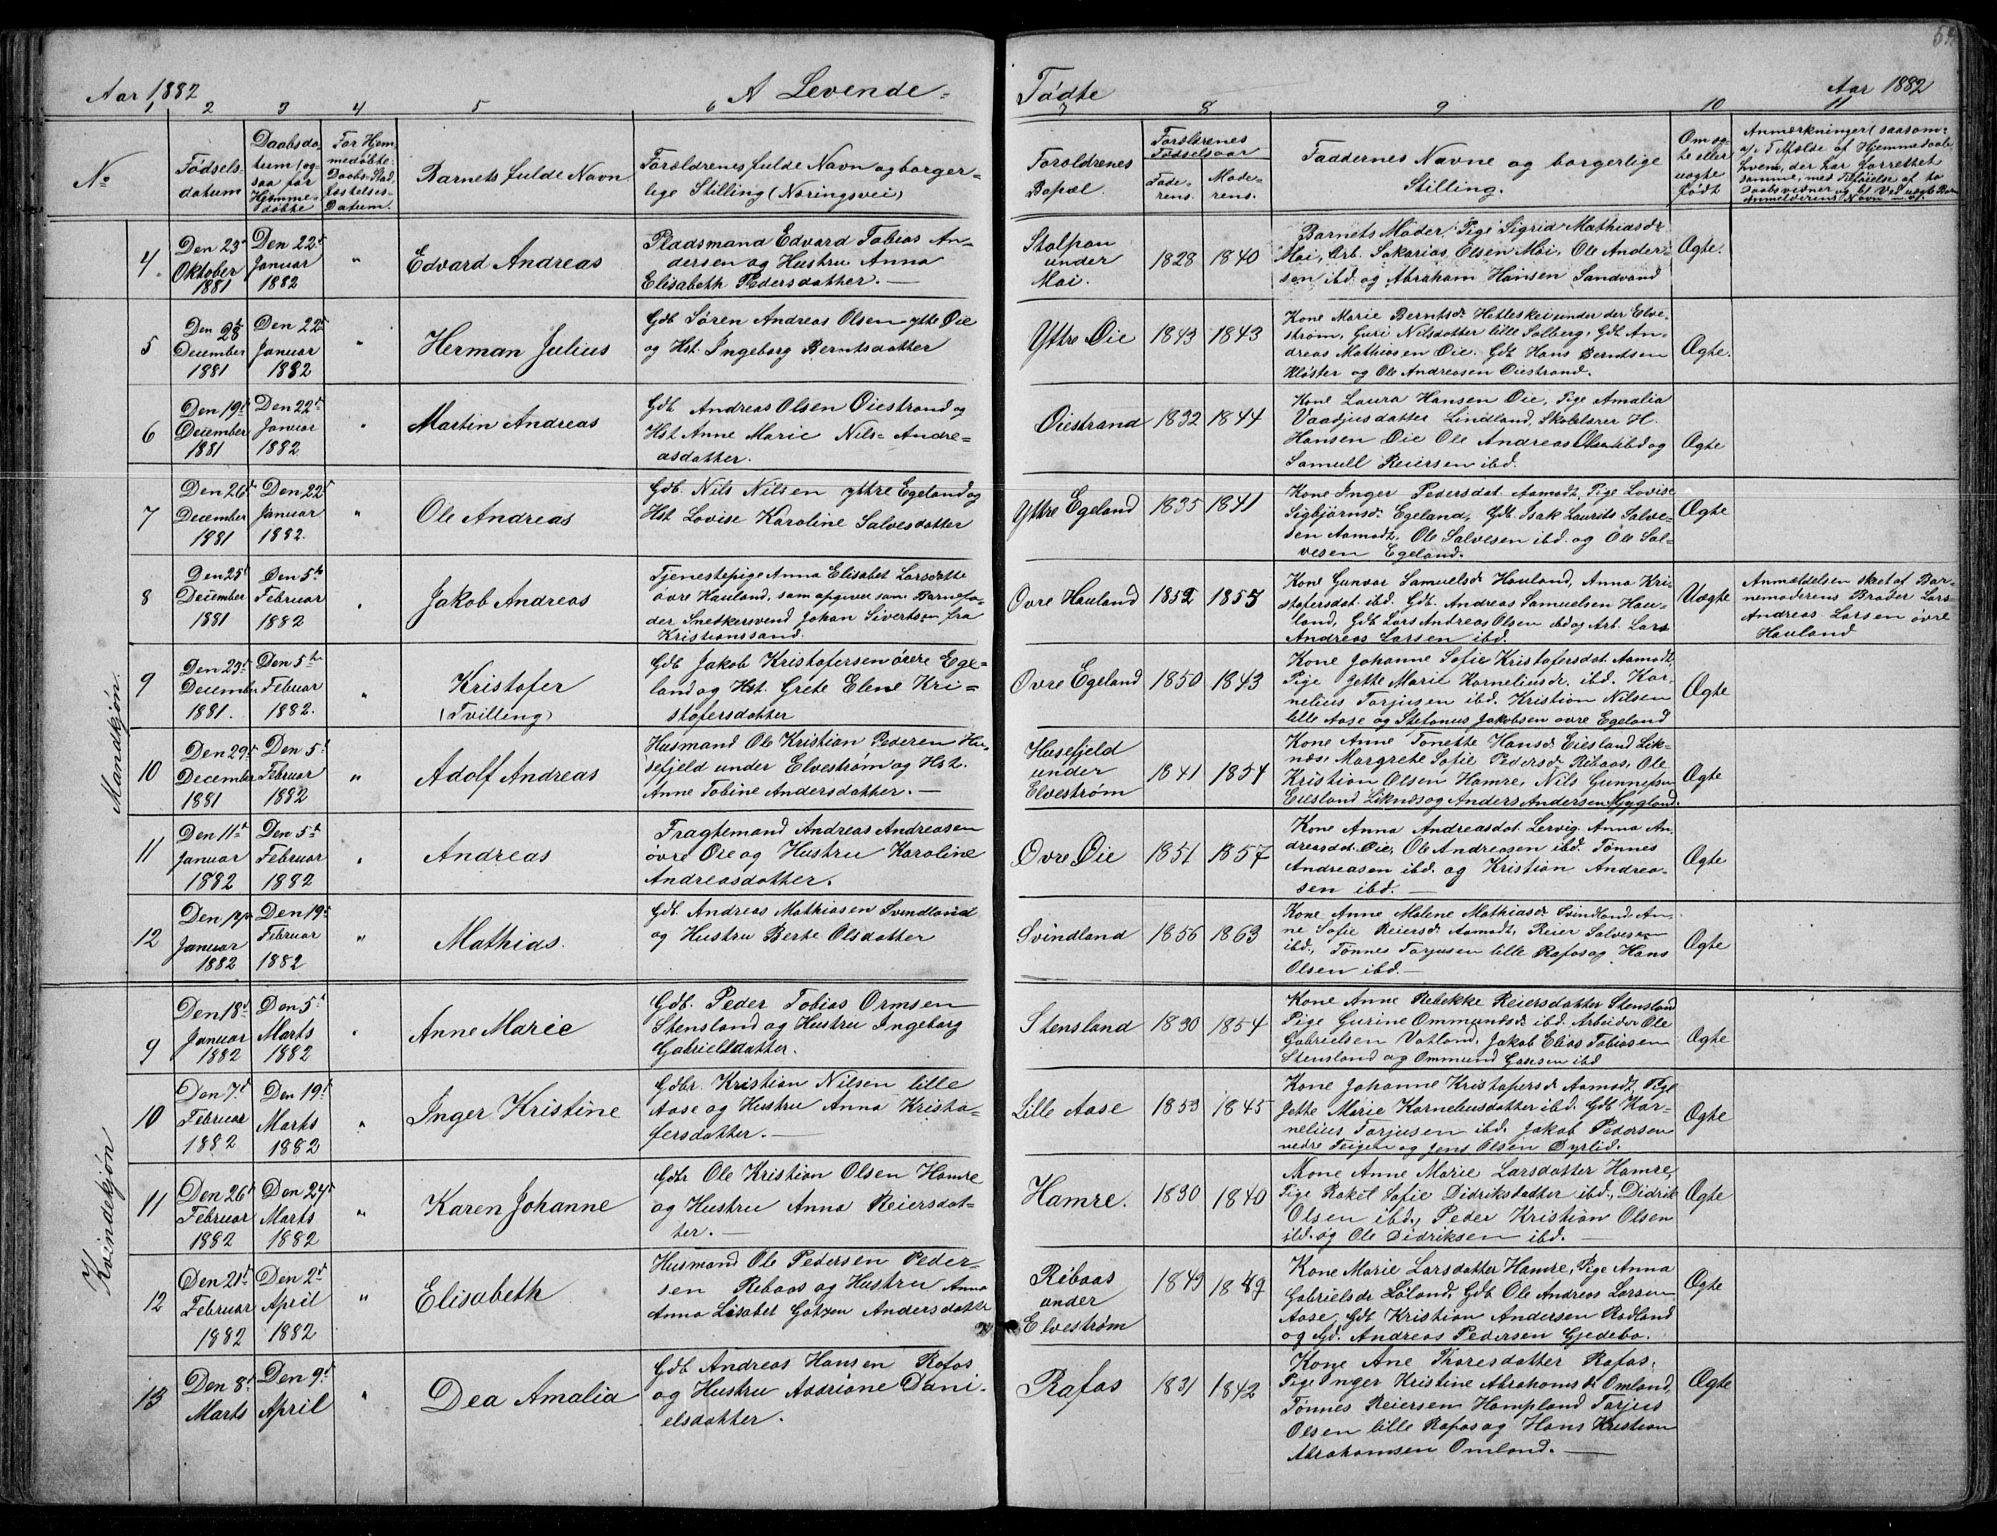 Aar 1882
A Levende
Fødte
Aar 1882
1 2 3 4 5 6 7 8 9 10 11
No
Fødsels-
datum
Daabsda-
tum (og-
saa for
Hjemme-
døbte
For Hjem-
medøbte
Daabs Stad-
fæstelses
Datum.
Barnets fulde Navn
Forældrenes fulde Navn og borger-
lige Stilling (Næringsvei)
Forældrenes
Bopæl.
Forældrenes
Fødselsaar
Fade-
rens.
Mode-
rens.
Faddernes Navne og borgerlige
Stilling.
Om æg-
te eller
uægte
født
Mandkjøn.
4.
Den 23de
Oktober
1881
Den 22de
Januar
1882
"
Edvard Andreas
Pladsmand Edvard Tobias An-
dersen og Hustru Anna
Elisabeth Pedersdatter.
Stolpan
under
Moi.
1828
1840
Barnets Moder, Pige Sigrid Mathiasdr
Moi, Arb. Sakarias Olsen Moi, Ole Ander-
sen ibd og Abraham Hansen Sandvand
Ægte.
5
Den 28
December
1881
Den 22de
Januar
1882
"
Herman Julius
Gdb Søren Andreas Olsen ytte Øie
og Hst. Ingeborg Berntsdatter
Yttre Øie
1843
1843
Kone Marie Berntsdr Hetleskei under der Elve-
strøm, Guri Nilsdatter lille Solberg, Gdb An-
dreas Mathiasen Øie. Gdb Hans Berntsen
Kløster og Ole Andreasen Øiestrand.
Ægte.
6
Den 19de
December
1881
Den 22de
Januar
1882
"
Martin Andreas
Gdb Andreas Olsen Øiestrand og
Hst Anne Marie Nils= Andre-
asdatter.
Øiestrand
1832
1844
Kone Laura Hansen Øie, Pige Amalia
Vaadjusdatter Lindland, Skolelærer H.
Hansen Øie Ole Andreas Olsen ibd og
Samuel Reiersen ibd.
Ægte
7
Den 26de
December
1881
Den 22de
Januar
1882.
"
Ole Andreas
Gdb. Nils Nilsen yttre Egeland og
Hst Lovise Karoline Salvesdatter
Yttre Egeland
1835
1841
Kone Inger Pedersdat. Aamodt, Pige Lovise
Sigbjørnsdr Egeland, Gdb. Isak Laurits Salve-
sen Aamodt, Ole Salvesen ibd. og Ole Sal-
vesen Egeland.
Ægte
8
Den 25de
December
1881
Den 5te
Februar
1882
"
Jakob Andreas
Tjenestepige Anna Elisabet Larsdatte
øvre Hauland, som opgiver som Barnefa-
der Snedkersvend Johan Sivertsen fra
Kristianssand.
Øvre Hauland
1852
1857
Kone Gunvor Samuelsdr Hauland, Anna Kri-
stofersdat. ibd. Gdb. Andreas Samuelsen Hau-
land, Gdb Lars Andreas Olsen ibd og Arb. Lars
Andreas Larsen ibd.
Uægte
Anmeldelsen skeet af Bar-
nemoderens Broder Lars
Andreas Larsen øvre
Hauland
9
Den 23de
December
1881.
Den 5te
Februar
1882.
"
Kristofer
(Tvilling)
Gdb Jakob Kristofersen øvre Ege-
land og Hst. Grete Elene Kri-
stofersdatter
Øvre Egeland
1850
1843
Kone Johanne Sofie Kristofersdat Aamodt,
Pige Jette Marie Korneliusdr. ibd. Kor-
nelius Tarjusen ibd. Kristian Nilsen
lille Aase og Stefanus Jakobsen øvre Egeland
Ægte
10
Den 29de
December
1881
Den 5te
Februar
1882
"
Adolf Andreas
Husmand Ole Kristian Pedersen Hu-
sefjeld under Elvestrøm og Hst.
Anne Tobine Andersdatter.
Husefjeld
under
Elvestrøm
1841
1854
Kone Anne Tonette Hansdr Eiesland Lik-
næs, Margrete Sofie Pedersdr Ribaas, Ole
Kristian Olsen Hamre, Nils Gunnefsen
Eiesland Liknæs og Anders Andersen Mygland.
Ægte
11
Den 11te
Januar
1882
Den 5te
Februar
1882
"
Andreas
Fragtemand Andreas Andreasen
øvre Øie og Hustru Karoline
Andreasdatter.
Øvre Øie
1851
1857
Kone Anna Andreasdat. Lervig, Anna An-
dreasdat. Øie, Ole Andreasen ibd. Tønnes
Andreasen ibd. og Kristian Andrea-
sen ibd.
Ægte
12
Januar
1882
Den 19de
Februar
1882
"
Mathias.
Gdb. Andreas Mathiasen Svindland
og Hustru Berte Olsdatter
Svindland
1856
1863
Kone Anne Malene Mathiasdr Svindland, An-
ne Sofie Reiersdr Aamodt, Reier Salvesen
ibd., Tønnes Tarjusen lille Rafos og Hans
Olsen ibd.
Ægte
Kvindekjøn
9
Den 18de
Januar
1882
Den 5te
Marts
1882
"
Anne Marie
Gdb. Peder Tobias Ormsen
Stensland og Hustru Ingeborg
Gabrielsdatter.
Stensland
1830
1854
Kone Anne Rebekke Reiersdatter Stensland
Pige Gurine Ommundsdr ibd. Arbeider Ole
Gabrielsen Vatland, Jakob Elias Tobiasen
Stensland og Ommund Larsen ibd
Ægte
10
Den 7de
Februar
1882
Den 19de
Marts
1882
"
Inger Kristine
Gdbr. Kristian Nilsen lille
Aase og Hustru Anna Kristo-
fersdatter.
Lille Aase
1853
1845
Kone Johanne Kristofersdr Aamodt, Pige
Jette Marie Korneliusdatter ibd. Gdb Kor-
nelius Tarjusen ibd. Jakob Pedersen
nedre Feigen og Jens Olsen Dyrlid.
Ægte
11
Den 26de
Februar
1882
Den 24de
Marts
1882
"
Karen Johanne
Gdbr Ole Kristian Olsen Hamre
og Hustru Anna Reiersdat-
ter.
Hamre.
1830
1840
Kone Anne Marie Larsdatter Hamre,
Pige Rakel Sofie Didriksdatter ibd., Didrik
Olsen ibd., Peder Kristian Olsen
ibd. og Ole Didriksen ibd.
Ægte
12
Den 21de
Februar
1882
Den 2den
April
1882
"
Elisabeth
Husmand Ole Pedersen Peder-
sen Rebaas og Hustru Anna
Anna Lisabet Andersdatte
Ribaas
under
Elvestrøm
1849
1849
Kone Marie Larsdatter Hamre, Pige Anna
Gabrielsdr Løland, Gdb Ole Andreas Larsen
Aase, Gdb Kristian Andersen Rødland
og Gd. Andreas Pedersen Gjedebo.
Ægte
13
Den 8de
Marts
Den 9de
April
"
Dea Amalia
Gdb Andreas Hansen Rafos
og Hustru Adriane Dani-
elsdatter.
Rafos
1831
1842
Kone Ane Thoresdatter Rafos,
Pige Inger Kristine Abrahamsdr Omland,
Tønnes Reiersen Hampland Tarjus
Olsen lille Rafos og Hans Kristian
Abrahamsen Omland.
Ægte